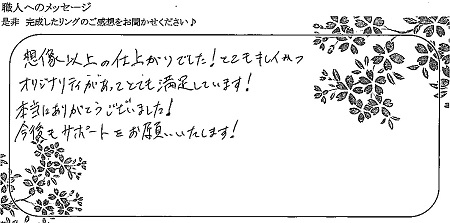 職人へのメッセージ
是非 完成したリングのご感想をお聞かせください♪
想像以上の仕上がりでした!とてもキレイかつ
オリジナリティがあってとても満足しています!
本当にありがとうございました!
今後もサポートをお願いいたします!